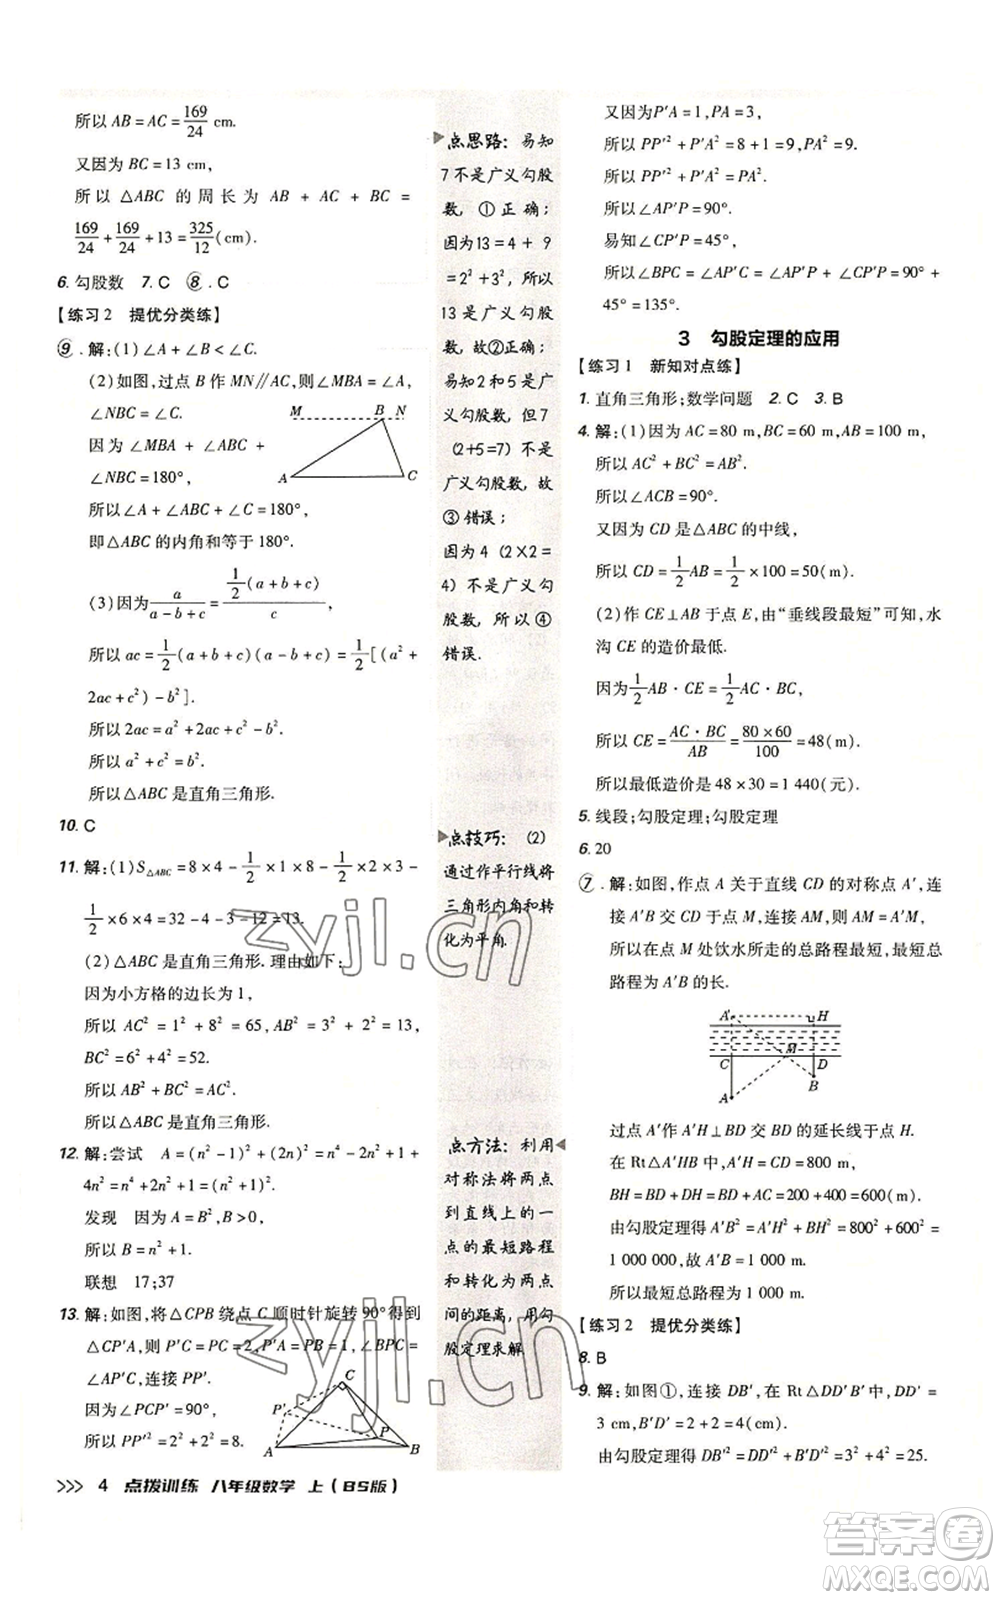 所以 AB = AC = 169/24 cm.
又因为 BC = 13 cm,
所以 △ABC 的周长为 AB + AC + BC =
169/24 + 169/24 + 13 = 325/12 (cm).
6. 勾股数 7. C ⑧. C
【练习2 提优分类练】
⑨. 解:(1)∠A + ∠B < ∠C.
(2)如图,过点 B 作 MN∥AC,则∠MBA = ∠A,
∠NBC = ∠C.
因为 ∠MBA + ∠ABC +
∠NBC = 180°,
所以∠A + ∠ABC + ∠C = 180°,
即△ABC 的内角和等于 180°.
M B N
A C
(3)因为 a/(a - b + c) = 1/2(a + b + c)/c,
所以 ac = 1/2(a + b + c)(a - b + c) = 1/2[(a² +
2ac + c²) - b²].
所以 2ac = a² + 2ac + c² - b².
所以 a² + c² = b².
所以△ABC 是直角三角形.
10. C
11. 解:(1)S△ABC = 8 × 4 - 1/2 × 1 × 8 - 1/2 × 2 × 3 -
1/2 × 6 × 4 = 32 - 4 - 3 - 12 = 13.
(2)△ABC 是直角三角形. 理由如下:
因为小方格的边长为 1,
所以 AC² = 1² + 8² = 65, AB² = 3² + 2² = 13,
BC² = 6² + 4² = 52.
所以 AB² + BC² = AC².
所以△ABC 是直角三角形.
12. 解:尝试 A = (n² - 1)² + (2n)² = n⁴ - 2n² + 1 +
4n² = n⁴ + 2n² + 1 = (n² + 1)².
发现 因为 A = B², B > 0,
所以 B = n² + 1.
联想 17;37
13. 解:如图,将△CPB 绕点 C 顺时针旋转 90°得到
△CP′A,则 P′C = PC = 2, P′A = PB = 1, ∠BPC =
∠AP′C, 连接 PP′.
因为∠PCP′ = 90°,
所以 PP′² = 2² + 2² = 8.
C
P′
P
A B
点思路: 易知
7 不是广义勾股
数, ①正确;
因为 13 = 4 + 9
= 2² + 3², 所以
13 是广义勾股
数, 故②正确;
易知 2 和 5 是广
义勾股数, 但 7
(2 + 5 = 7) 不是
广义勾股数, 故
③ 错误;
因为 4 (2 × 2 =
4) 不是广义勾
股数, 所以 ④
错误.
点技巧: (2)
通过作平行线将
三角形内角和转
化为平角.
点方法: 利用
对称法将两点
到直线上的一
点的最短路程
和转化为两点
间的距离, 用勾
股定理求解.
又因为 P′A = 1, PA = 3,
所以 PP′² + P′A² = 8 + 1 = 9, PA² = 9.
所以 PP′² + P′A² = PA².
所以∠AP′P = 90°.
易知∠CP′P = 45°,
所以∠BPC = ∠AP′C = ∠AP′P + ∠CP′P = 90° +
45° = 135°.
3 勾股定理的应用
【练习1 新知对点练】
1. 直角三角形;数学问题 2. C 3. B
4. 解:(1)因为 AC = 80 m, BC = 60 m, AB = 100 m,
所以 AC² + BC² = AB².
所以∠ACB = 90°.
又因为 CD 是△ABC 的中线,
所以 CD = 1/2 AB = 1/2 × 100 = 50(m).
(2)作 CE⊥AB 于点 E,由“垂线段最短”可知,水
沟 CE 的造价最低.
因为 1/2 AB · CE = 1/2 AC · BC,
所以 CE = AC · BC/AB = 80 × 60/100 = 48(m).
所以最低造价是 48 × 30 = 1 440(元).
5. 线段;勾股定理;勾股定理
6. 20
⑦. 解:如图,作点 A 关于直线 CD 的对称点 A′,连
接 A′B 交 CD 于点 M,连接 AM,则 AM = A′M,
所以在点 M 处饮水所走的总路程最短,最短总
路程为 A′B 的长.
A′ H
C M D
B
A
过点 A′作 A′H⊥BD 交 BD 的延长线于点 H.
在 Rt△A′HB 中, A′H = CD = 800 m,
BH = BD + DH = BD + AC = 200 + 400 = 600(m),
由勾股定理得 A′B² = A′H² + BH² = 800² + 600² =
1 000 000,故 A′B = 1 000 m.
所以最短总路程为 1 000 m.
【练习2 提优分类练】
8. B
9. 解:如图①,连接 DB′,在 Rt△DD′B′中, DD′ =
3 cm, B′D′ = 2 + 2 = 4(cm),
由勾股定理得 DB′² = DD′² + B′D′² = 3² + 4² = 25.
>>> 4 点拨训练 八年级数学 上(BS版)
zyjl.cn
zyjl.cn
答案圈
MXQE.COM